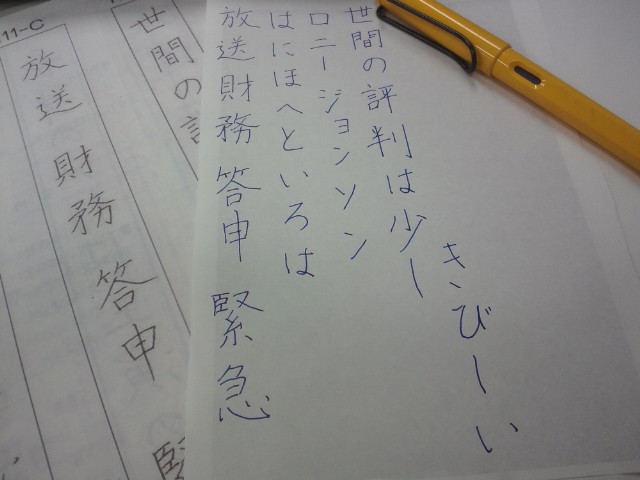 世間の評判は少し
きびしい
ロニージョンソン
はにほへといろは
放送財務答申 緊急
世間の
11-C
放送 財務 答申